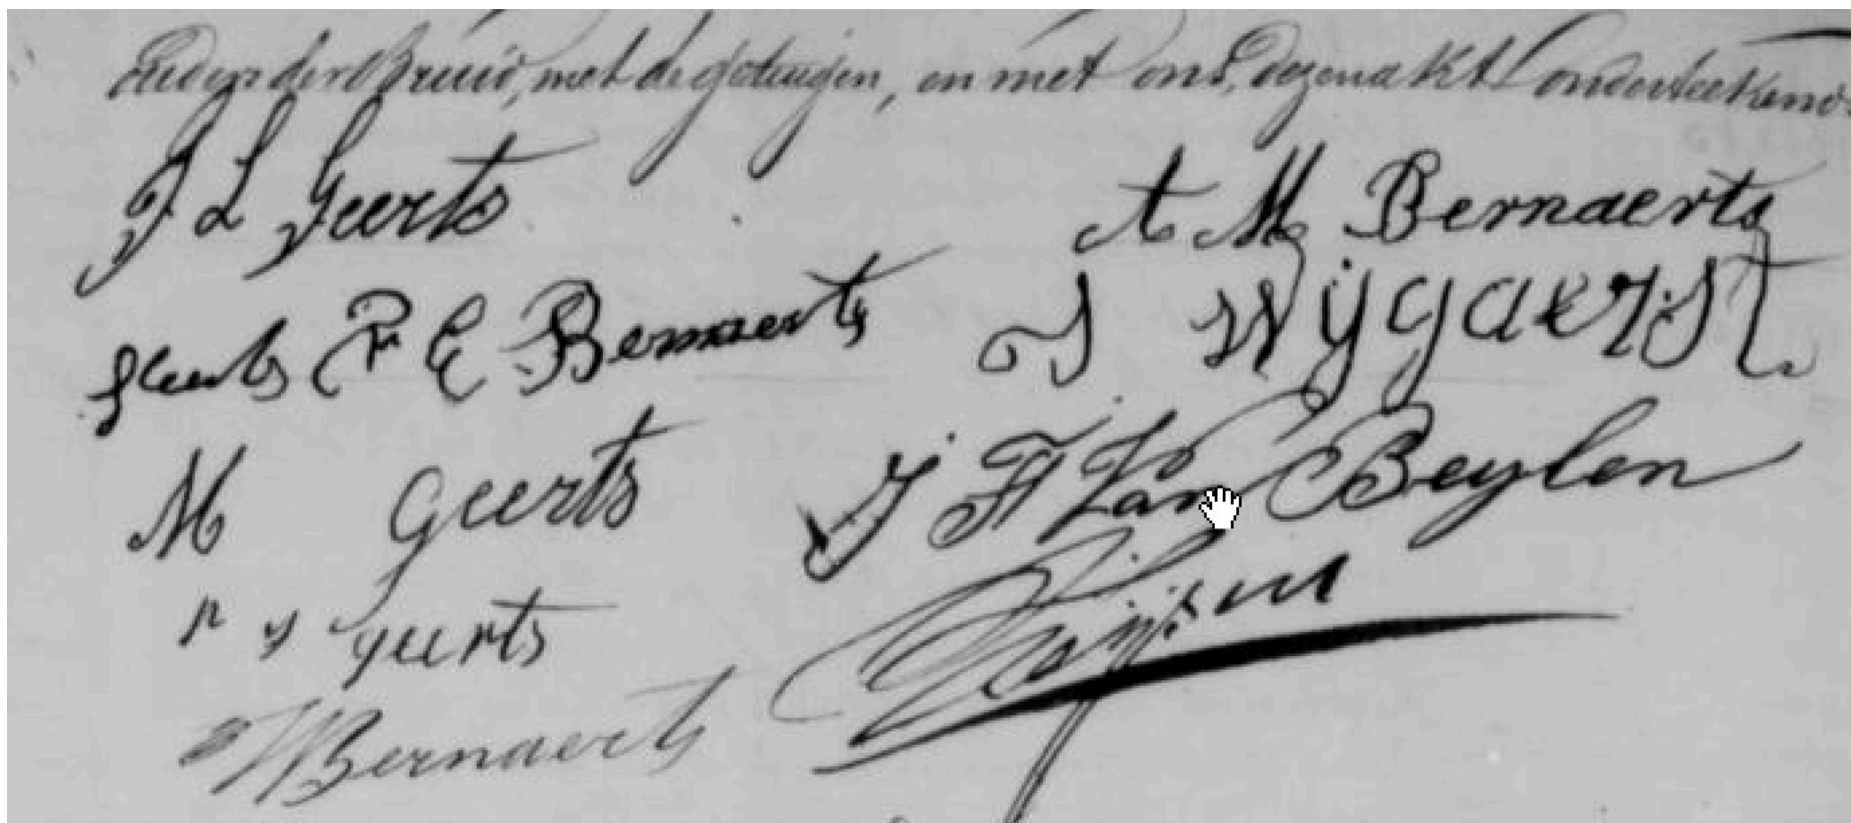 Ouders der Bruid, met de getuigen, en met ons, dezen akt onderteekend.
J L Geerts
A M Bernaerts
Geerts P E Bernaerts
J Wygaerst
M Geerts
J F Van Beylen
Geerts
Bernaerts